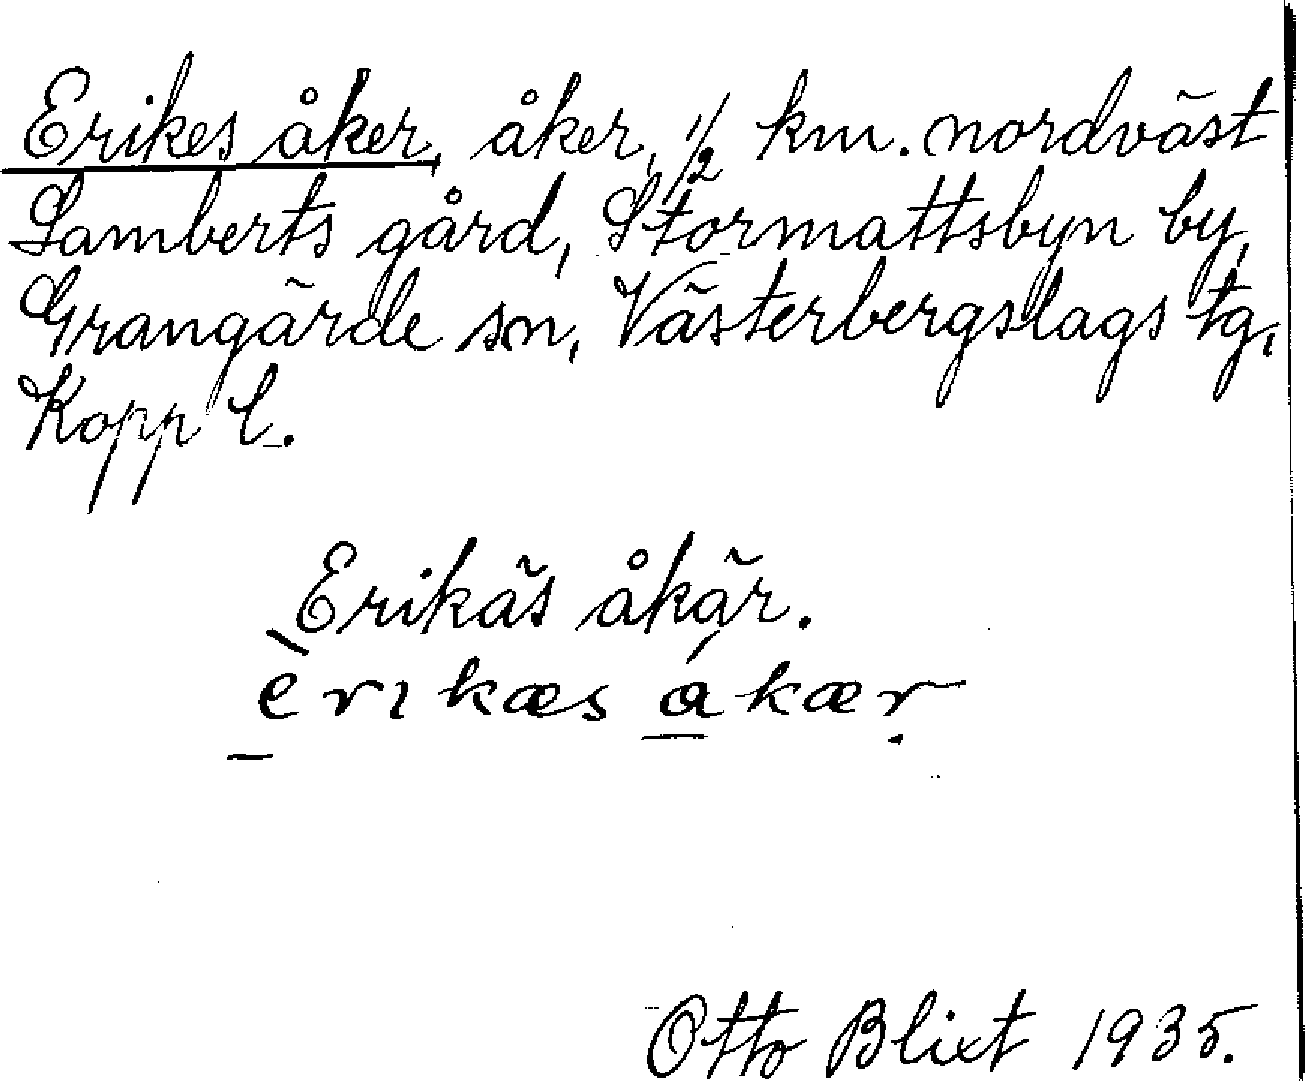 Erikes åker, åker, 1/2 km. nordväst
Lamberts gård, Stormattsbyn by,
Grangärde sn, Västerbergslags tg,
Kopp l.
Erikäs åkär.
èrikæs ákær
Otto Blixt 1935.